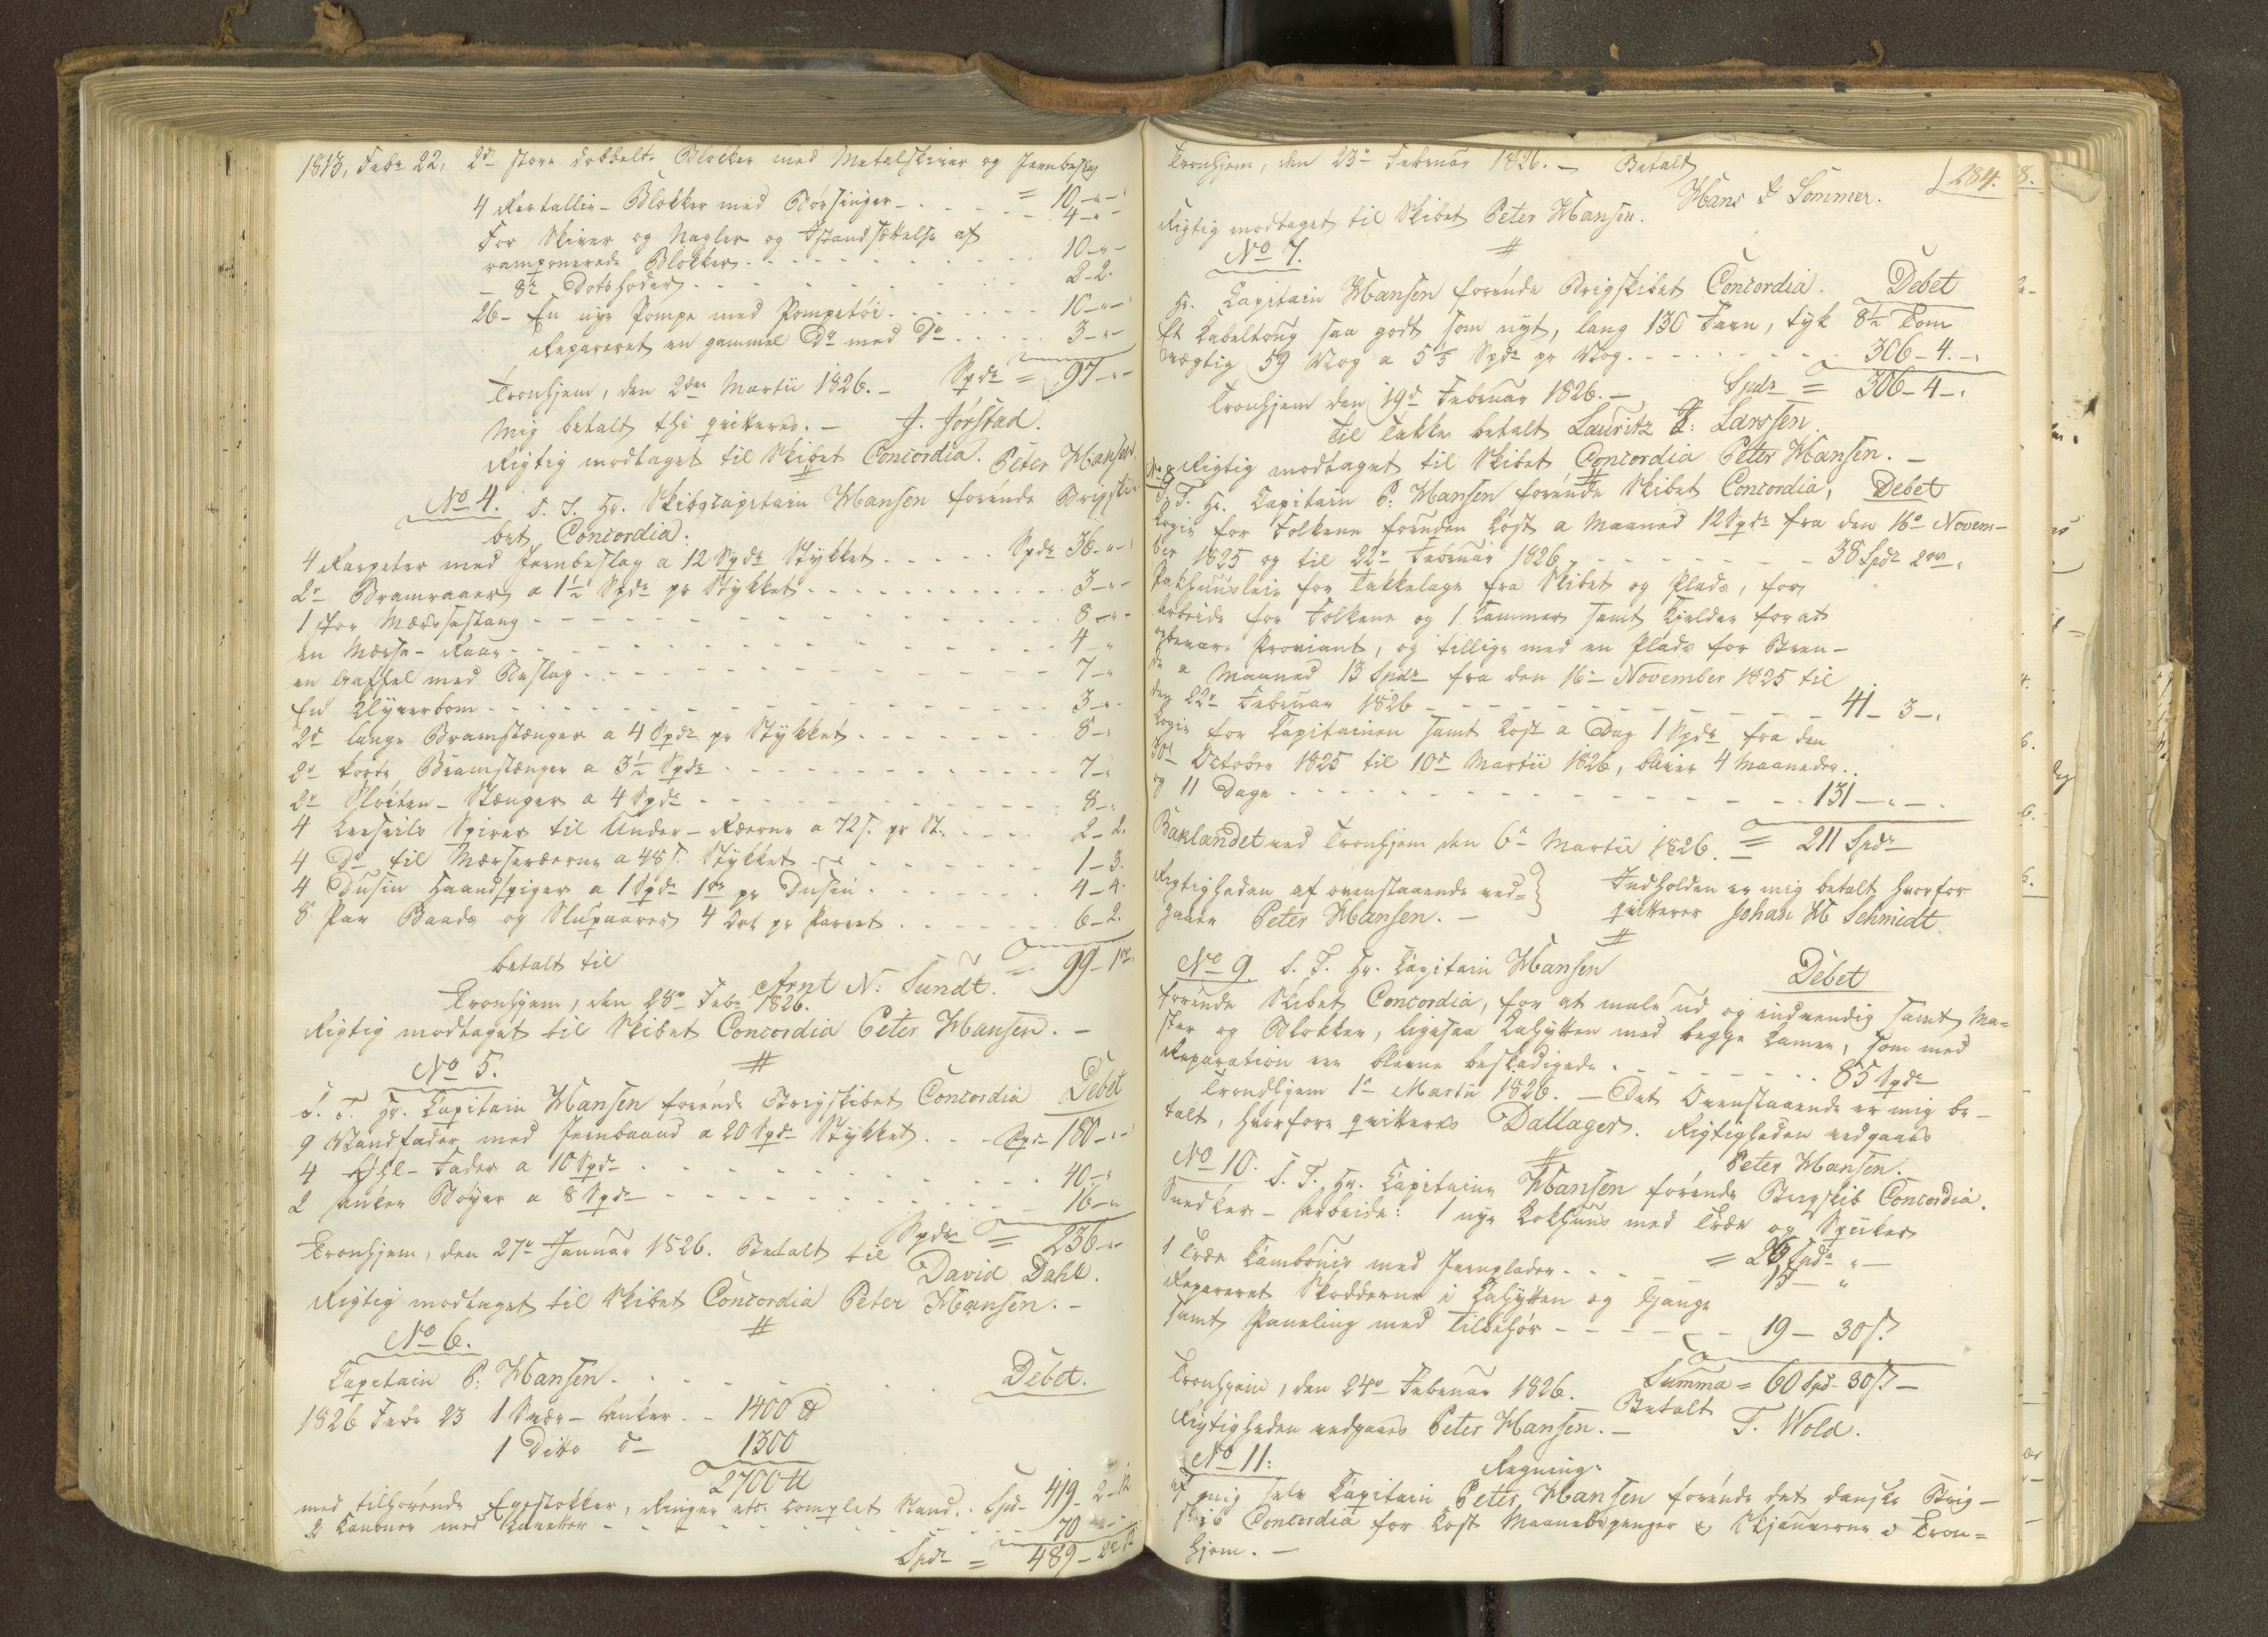 1813, Febr 22, 2de store dobbelte Blokker med Metalskiver og Jernbeslag
= 10-"-
4 Bertallie- Blokker med Bøsninger - 4-"-
For Skiver og Nagler og Istandsættelse af
ramponerede Blokker 10-"-
- 8te Dotshoder 2-2.
26- En nye Pompe med Pompetøi 10-"-
Repareret en gammel Do med Do 3-"-
Spdr = 97-"-
Tronhjem, den 2den Martii 1826.-
Mig betalt thi qvitteres.- J. Jørstad.
Rigtig modtaget til Skibet Concordia. Peter Hansen.
No 4. S. T. Hr. Skibscapitain Hansen førende Brigski-
bet Concordia:
4 Rærpeter med Jernbeslag a 12 Spdr Stykket Spdr 36-"-
2de Bramraaer a 1½ Spdr pr Stykket 3-"-
1 stor Mærssestang 8-"-
en Mærse-Raae 4-"
en Gaffel med Beslag 7-"
En Klyverbom 3-"-
2de lange Bramstænger a 4 Spdr pr Stykket 8-"
2de korte Bramstænger a 3½ Spdr 7-"
2de Skøiten-Stænger a 4 Spdr 8-"
4 Leeseils Spirer til Under-Ræerne a 72 s. pr St. 2-2.
4 Do til Mærseræerne a 48 s. Stykket 1-3.
4 Dusin Haandspiger a 1 Spdr 1 ort pr Dusin 4-4.
8 Par Baads og Slupaarer 4 ort pr Parret 6-2.
= 99-1 ort
betalt til
Arnt N: Sundt.
Tronhjem, den 28de Febr 1826.
Rigtig modtaget til Skibet Concordia Peter Hansen.-
No 5.
S. T. Hr. Capitain Hansen førende Brigskibet Concordia Debet
9 Vandfader med Jernbaand a 20 Spdr Stykket Spdr 180-"-
4 Øll-Fader a 10 Spdr 40-"
2 Anker Bøyer a 8 Spdr 16-"
Spdr = 236-"-
Tronhjem, den 27de Januar 1826. Betalt til
David Dahl.
Rigtig modtaget til Skibet Concordia Peter Hansen.-
No 6.
Capitain P: Hansen Debet.
1826 Febr 23 1 Svær-Anker - 1400 ℔
1 Ditto d- 1300
2700 ℔
med tilhørende Egestokker, Ringer etc. complet Stand. Spdr 419-2-12
2 Canoner med 70 "-
Spdr = 489-2-12
284.
Tronhjem, den 23de Februar 1826.- Betalt
Hans F Sommer.
Rigtig modtaget til Skibet Peter Hansen.
No 7.
Hr. Capitain Hansen førende Brigskibet Concordia. Debet
Et Kabeltoug saa godt som nyt, lang 130 Favn, tyk 8½ Tom
vægtig 59 Vog a 5⅕ Spdr pr Vog 306-4-"
Spdr = 306-4-"
Tronhjem den 19de Februar 1826.-
Til Takke betalt Lauritz L: Larssen.
Rigtig modtaget til Skibet Concordia Peter Hansen.-
No 8
S. T. Hr. Capitain P: Hansen førende Skibet Concordia, Debet
Logie for Folkene foruden Kost a Maaned 12 Spdr fra den 16de Novem-
ber 1825 og til 22de Februar 1826 38 Spdr 2 ort
Pakhuusleie for Takkelage fra Skibet og Plads, for
Arbeide for Folkene og 1 Kammer samt Kjelder for at
opbevare Proviant, og tillige med en Plads for Bræn-
de a Maaned 13 Spdr fra den 16de November 1825 til
den 22de Februar 1826 41-3-"
Logie for Capitainen samt Kost a Dag 1 Spdr fra den
30te October 1825 til 10de Martii 1826, bliver 4 Maaneder
og 11 Dage 131-"-
Baklandet ved Tronhjem den 6te Martii 1826. = 211 Spdr
Rigtigheden af ovenstaaende ved-
gaaer Peter Hansen.-
Indholden er mig betalt hvorfor
qvitterer Johan H Schmidt.
No 9. S. T. Hr. Capitain Hansen Debet
førende Skibet Concordia, for at male ud og indvendig samt Ma=
ster og Blokker, ligesaa Kahytten med begge Kamre, som med
Reparation ere blevne beskadigede 85 Spdr
Trondhjem 1te Martii 1826.- Det Ovenstaaende er mig be-
talt, hvorfore qvitteres Dallager. Rigtigheden vedgaaes
Peter Hansen.
No 10. S. T. Hr. Capitaine Hansen førende Brigskib Concordia.
Snedker-Arbeide: 1 nye Kokhuus med Træe og Spiiker
= 26 Spdr "-
1 Træe Kambønis med Jernplader 15- "
Repareret Skodderne i Kahytten og Gange
samt Paneling med Tilbehør 19- 30 s.
Summa = 60 Spd- 30 s.-
Tronhjem, den 24de Februar 1826. Betalt
Rigtigheden vedgaaes Peter Hansen.- T. Wold.
No 11: Regning:
af mig selv Capitain Peter Hansen førende det danske Brig-
skib Concordia for Kost Maanedspenger i Tron=
hjem.-